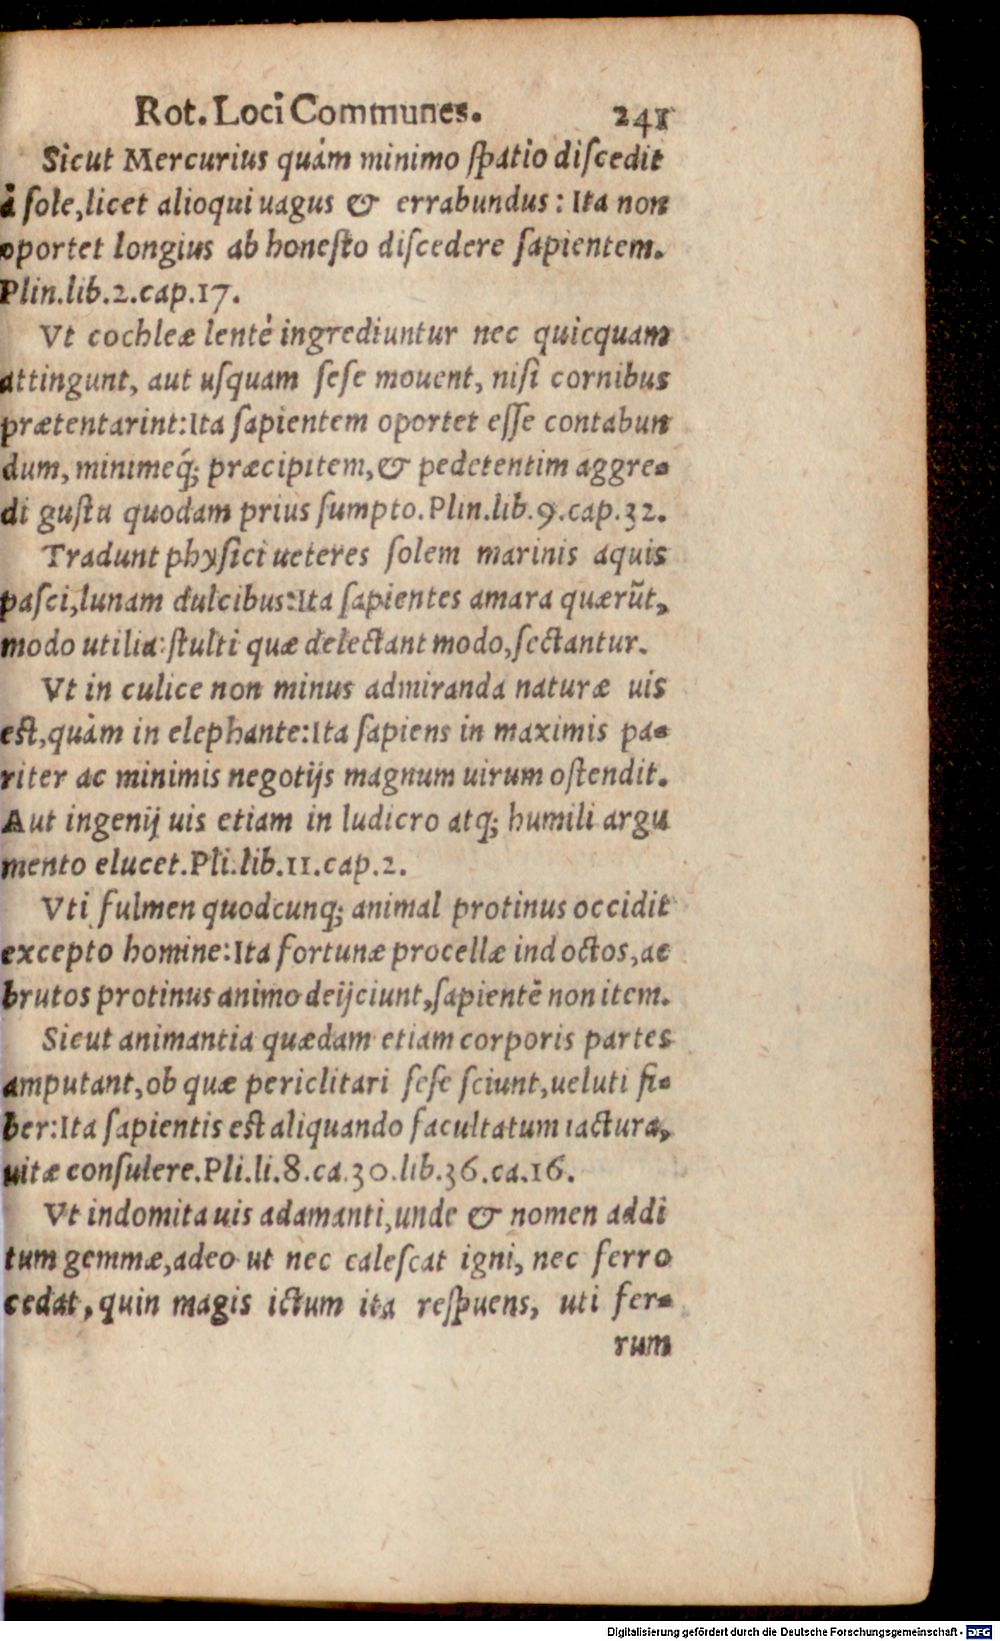 Rot. Loci Communes. 241
Sicut Mercurius quàm minimo ſpatio diſcedit
à ſole, licet alioqui uagus & errabundus: Ita non
oportet longius ab honeſto diſcedere ſapientem.
Plin.lib.2.cap.17.
Vt cochleæ lentè ingrediuntur nec quicquam
attingunt, aut uſquam ſeſe mouent, niſi cornibus
prætentarint: Ita ſapientem oportet eſſe contabun
dum, minimeq́; præcipitem, & pedetentim aggre-
di guſtu quodam prius ſumpto. Plin.lib.9.cap.32.
Tradunt phyſici ueteres ſolem marinis aquis
paſci, lunam dulcibus: Ita ſapientes amara quærũt,
modo utilia: ſtulti quæ delectant modo, ſectantur.
Vt in culice non minus admiranda naturæ uis
eſt, quàm in elephante: Ita ſapiens in maximis pa-
riter ac minimis negotijs magnum uirum oſtendit.
Aut ingenij uis etiam in ludicro atq; humili argu
mento elucet. Pli.lib.11.cap.2.
Vti fulmen quodcunq; animal protinus occidit
excepto homine: Ita fortunæ procellæ indoctos, ac
brutos protinus animo deijciunt, ſapientẽ non item.
Sicut animantia quædam etiam corporis partes
amputant, ob quæ periclitari ſeſe ſciunt, ueluti fi-
ber: Ita ſapientis eſt aliquando facultatum iactura,
uitæ conſulere. Pli.li.8.ca.30.lib.36.ca.16.
Vt indomita uis adamanti, unde & nomen addi
tum gemmæ, adeo ut nec caleſcat igni, nec ferro
cedat, quin magis ictum ita reſpuens, uti fer-
rum
Digitalisierung gefördert durch die Deutsche Forschungsgemeinschaft - DFG